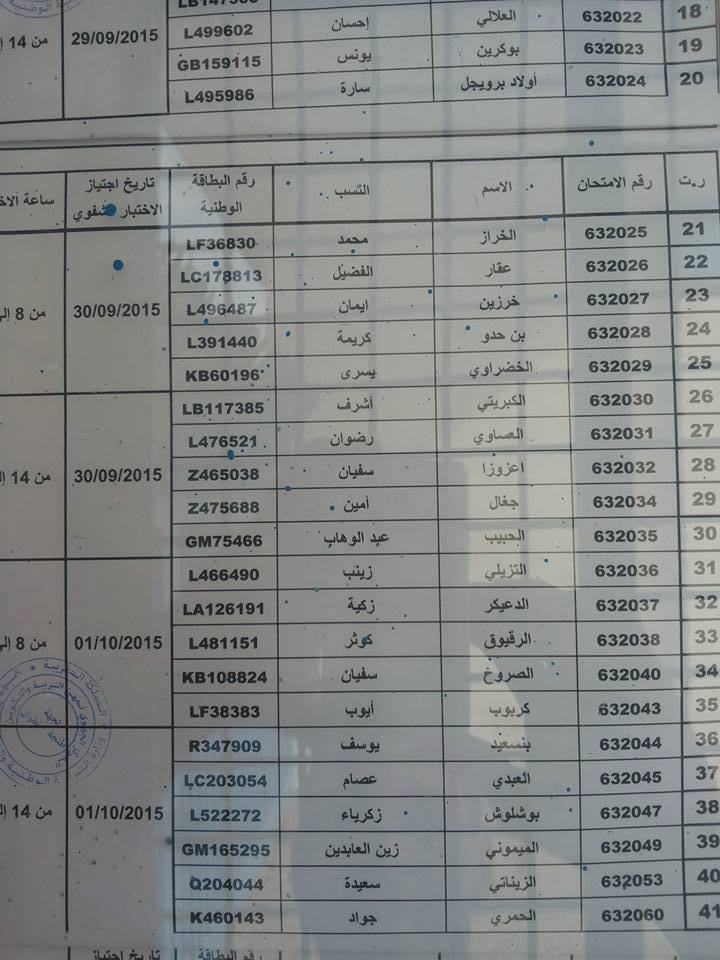 18 632022 العلالي إحسان L499602
19 632023 بوكرين يونس GB159115 29/09/2015 من 14
20 632024 أولاد برويجل سارة L495986
ر.ت رقم الامتحان الاسم النسب رقم البطاقة الوطنية تاريخ اجتياز الاختبار الشفوي ساعة
21 632025 الخراز محمد LF36830
22 632026 عقار الفضيل LC178813
23 632027 خرزين ايمان L496487 30/09/2015 من 8
24 632028 بن حدو كريمة L391440
25 632029 الخضراوي يسرى KB60196
26 632030 الكبريتي أشرف LB117385
27 632031 العساوي رضوان L476521
28 632032 اعزوزا سفيان Z465038 30/09/2015 من 14
29 632034 جغال أمين Z475688
30 632035 الحبيب عبد الوهاب GM75466
31 632036 التزيلي زينب L466490
32 632037 الدعيكر زكية LA126191
33 632038 الرقيوق كوثر L481151 01/10/2015 من 8
34 632040 الصروخ سفيان KB108824
35 632043 كربوب أيوب LF38383
36 632044 بنسعيد يوسف R347909
37 632045 العبدي عصام LC203054
38 632047 بوشلوش زكرياء L522272 01/10/2015 من 14
39 632049 الميموني زين العابدين GM165295
40 632053 الزيناتي سعيدة Q204044
41 632060 الحمري جواد K460143
رقم البطاقة تاريخ اجتياز